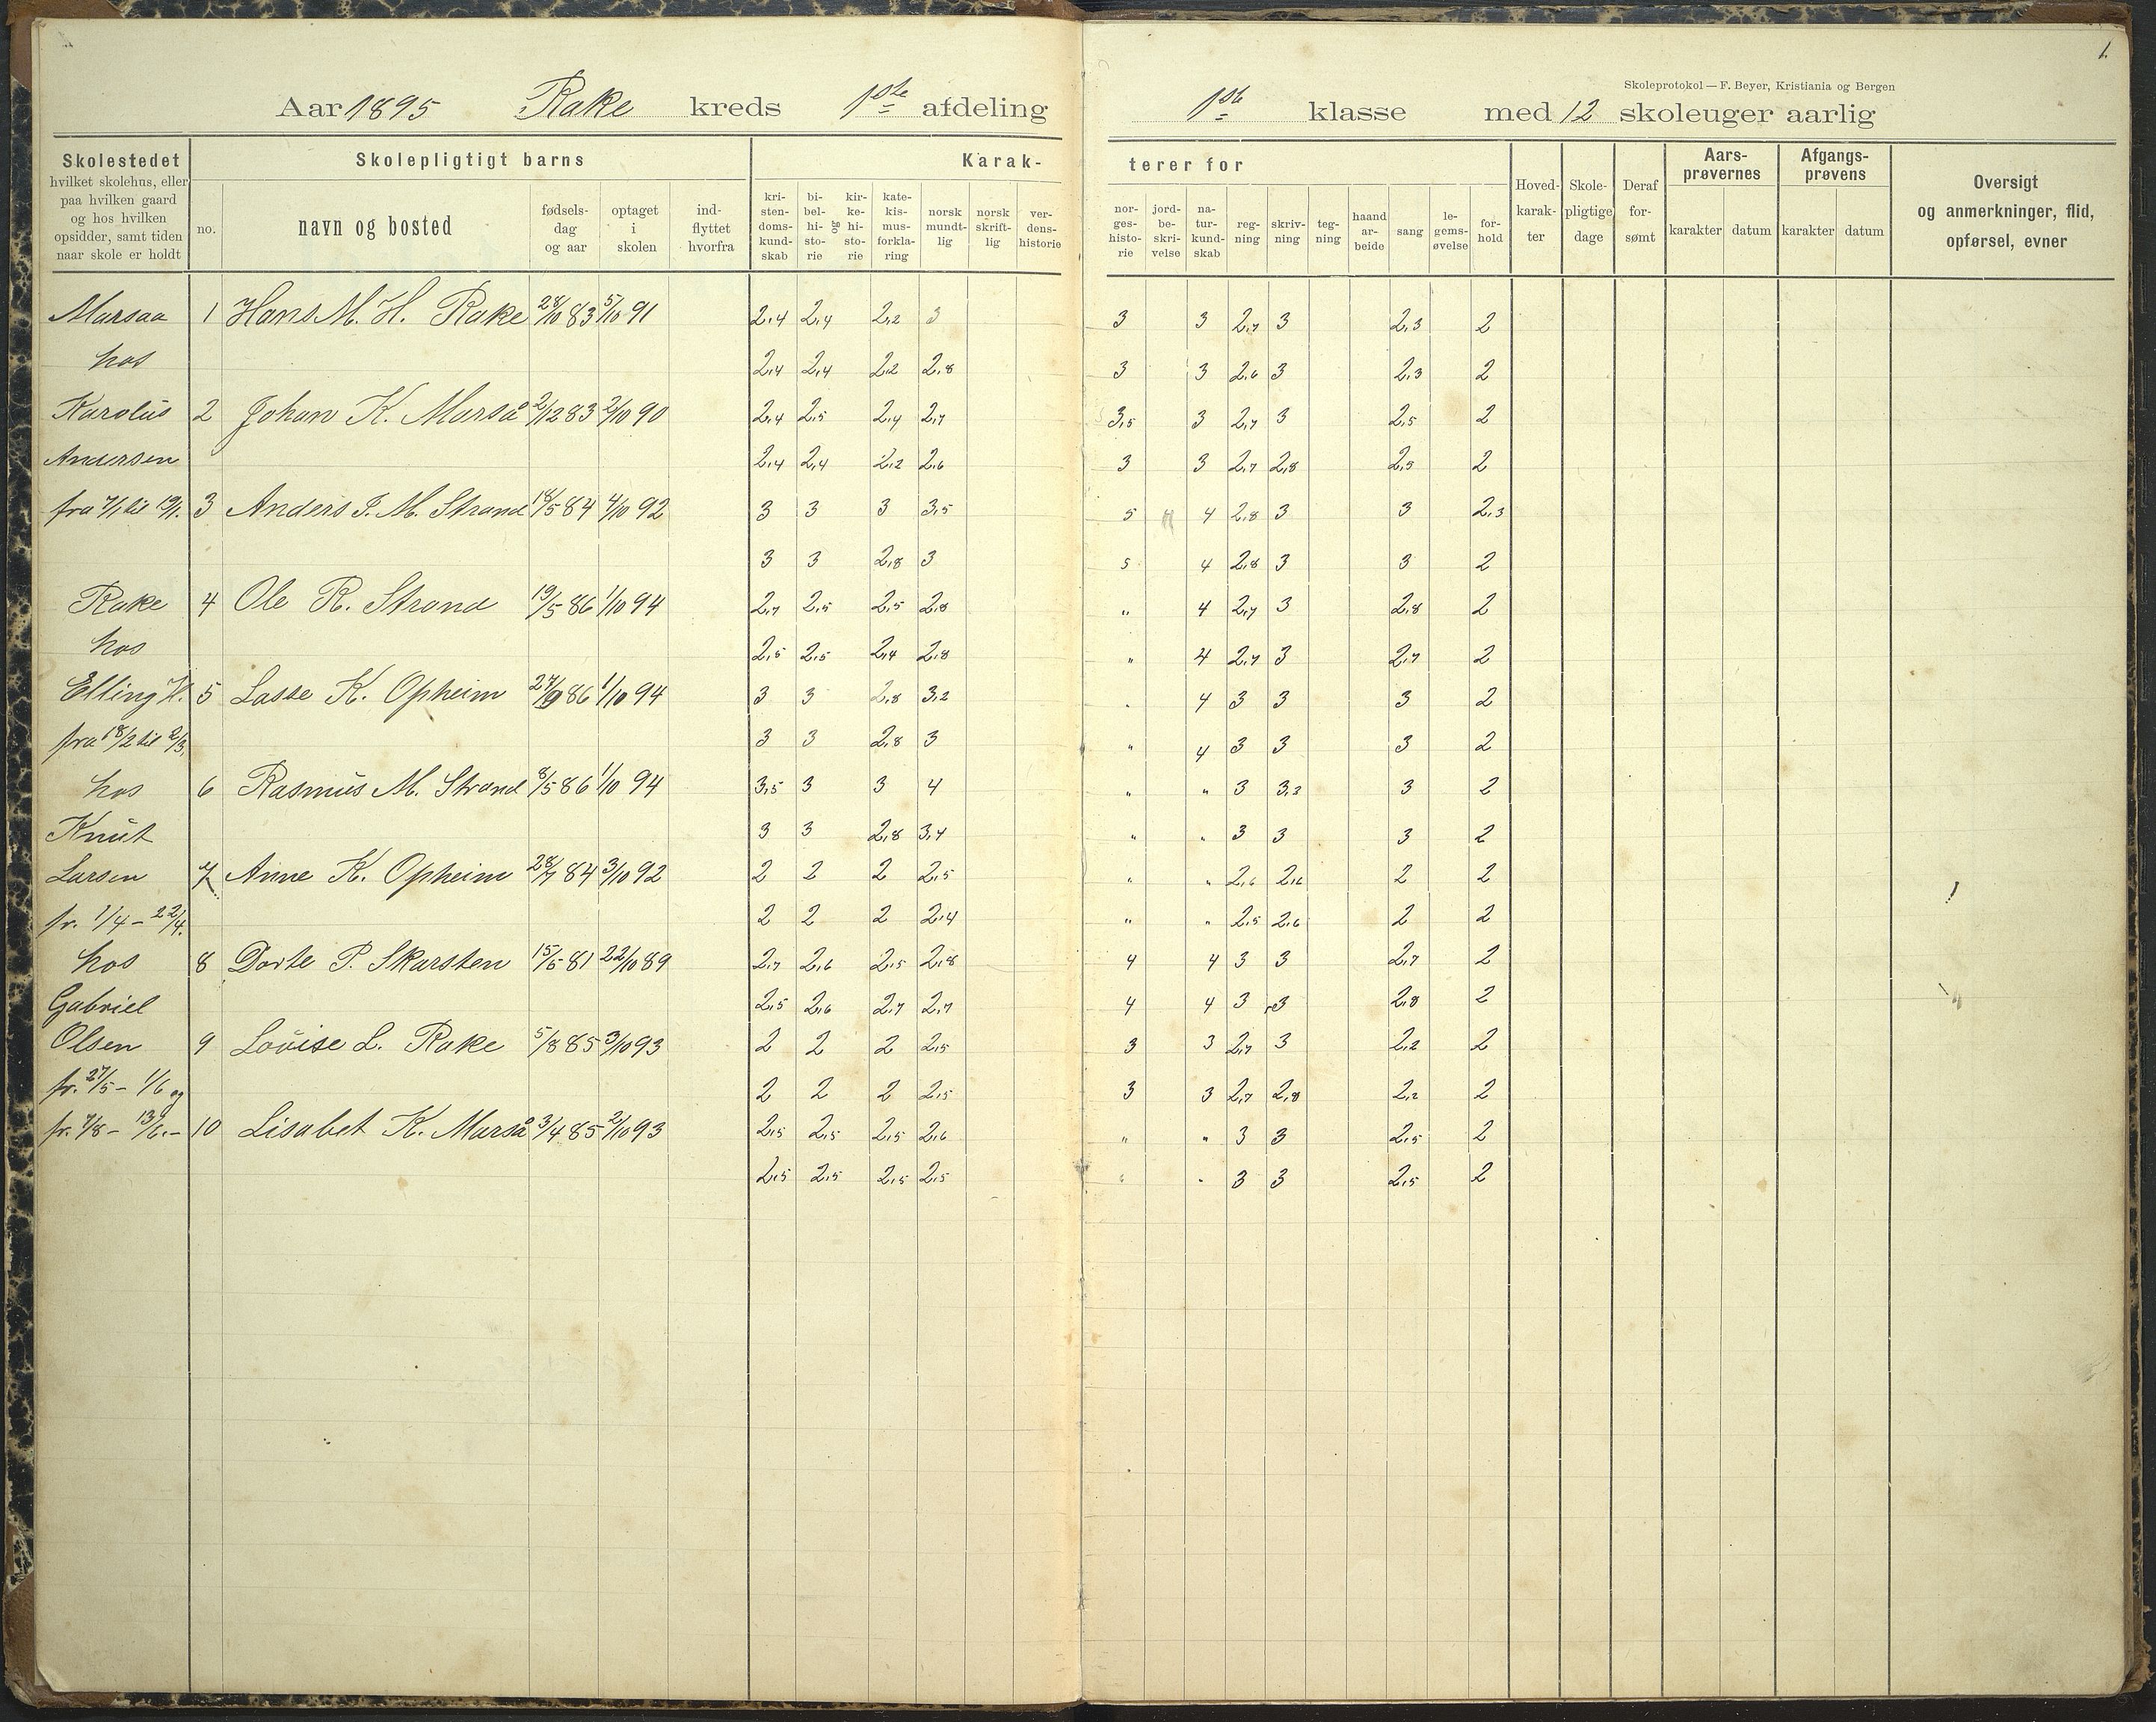 1.
Skoleprotokol — F. Beyer, Kristiania og Bergen
Aar 1895 Rake kreds 1ste afdeling 1ste klasse med 12 skoleuger aarlig
Skolestedet
hvilket skolehus, eller
paa hvilken gaard
og hos hvilken
opsidder, samt tiden
naar skole er holdt
Skolepligtigt barns
no.
navn og bosted
fødsels-
dag
og aar
optaget
i
skolen
ind-
flyttet
hvorfra
Karak-
kri-
sten-
doms-
kund-
skab
bi-
bel-
hi-
sto-
rie
og
kir-
ke-
hi-
sto-
rie
kate-
kis-
mus-
forkla-
ring
norsk
mundt-
lig
norsk
skrift-
lig
ver-
dens-
historie
terer for
nor-
ges-
histo-
rie
jord-
be-
skri-
velse
na-
tur-
kund-
skab
reg-
ning
skriv-
ning
teg-
ning
haand
ar-
beide
sang
le-
gems-
øvelse
for-
hold
Hoved-
karak-
ter
Skole-
pligtige
dage
Deraf
for-
sømt
Aars-
prøvernes
karakter datum
Afgangs-
prøvens
karakter datum
Oversigt
og anmerkninger, flid,
opførsel, evner
Marsaa 1 Hans M. H. Rake 28/10 83 5/10 91 2,4 2,4 2,2 3 3 3 2,7 3 2,3 2
hos 2,4 2,4 2,2 2,8 3 3 2,6 3 2,3 2
Karolus 2 Johan K. Marså 2/12 83 2/10 90 2,4 2,5 2,4 2,7 3,5 3 2,7 3 2,5 2
Andersen 2,4 2,4 2,2 2,6 3 3 2,7 2,8 2,5 2
fra 7/1 til 19/1. 3 Anders T. M. Strand 18/5 84 4/10 92 3 3 3 3,5 5 4 2,8 3 3 2,3
3 3 2,8 3 5 4 2,8 3 3 2
Rake 4 Ole R. Strand 19/5 86 1/10 94 2,7 2,5 2,5 2,8 " 4 2,7 3 2,8 2
hos 2,5 2,5 2,4 2,8 " 4 2,7 3 2,7 2
Elling H. 5 Lasse K. Opheim 27/9 86 1/10 94 3 3 2,8 3,2 " 4 3 3 3 2
fra 18/2 til 2/3, 3 3 2,8 3 " 4 3 3 3 2
hos 6 Rasmus M. Strand 8/5 86 1/10 94 3,5 3 3 4 " " 3 3,2 3 2
Knut 3 3 2,8 3,4 " " 3 3 3 2
Larsen 7 Anne K. Opheim 28/7 84 3/10 92 2 2 2 2,5 " " 2,6 2,6 2 2
fr. 1/4 – 22/4. 2 2 2 2,4 " " 2,5 2,6 2 2
hos 8 Dorte P. Skarsten 15/5 81 22/10 89 2,7 2,6 2,5 2,8 4 4 3 3 2,7 2
Gabriel 2,5 2,6 2,7 2,7 4 4 3 3 2,8 2
Olsen 9 Lovise L. Rake 5/8 85 3/10 93 2 2 2 2,5 3 3 2,7 3 2,2 2
fr. 27/5 – 1/6 og 2 2 2 2,5 3 3 2,7 2,8 2,2 2
fr. 7/8 – 13/6. – 10 Lisabet K. Marså 3/4 85 2/10 93 2,5 2,5 2,5 2,6 " " 3 3 2,5 2
2,5 2,5 2,5 2,5 " " 3 3 2,5 2